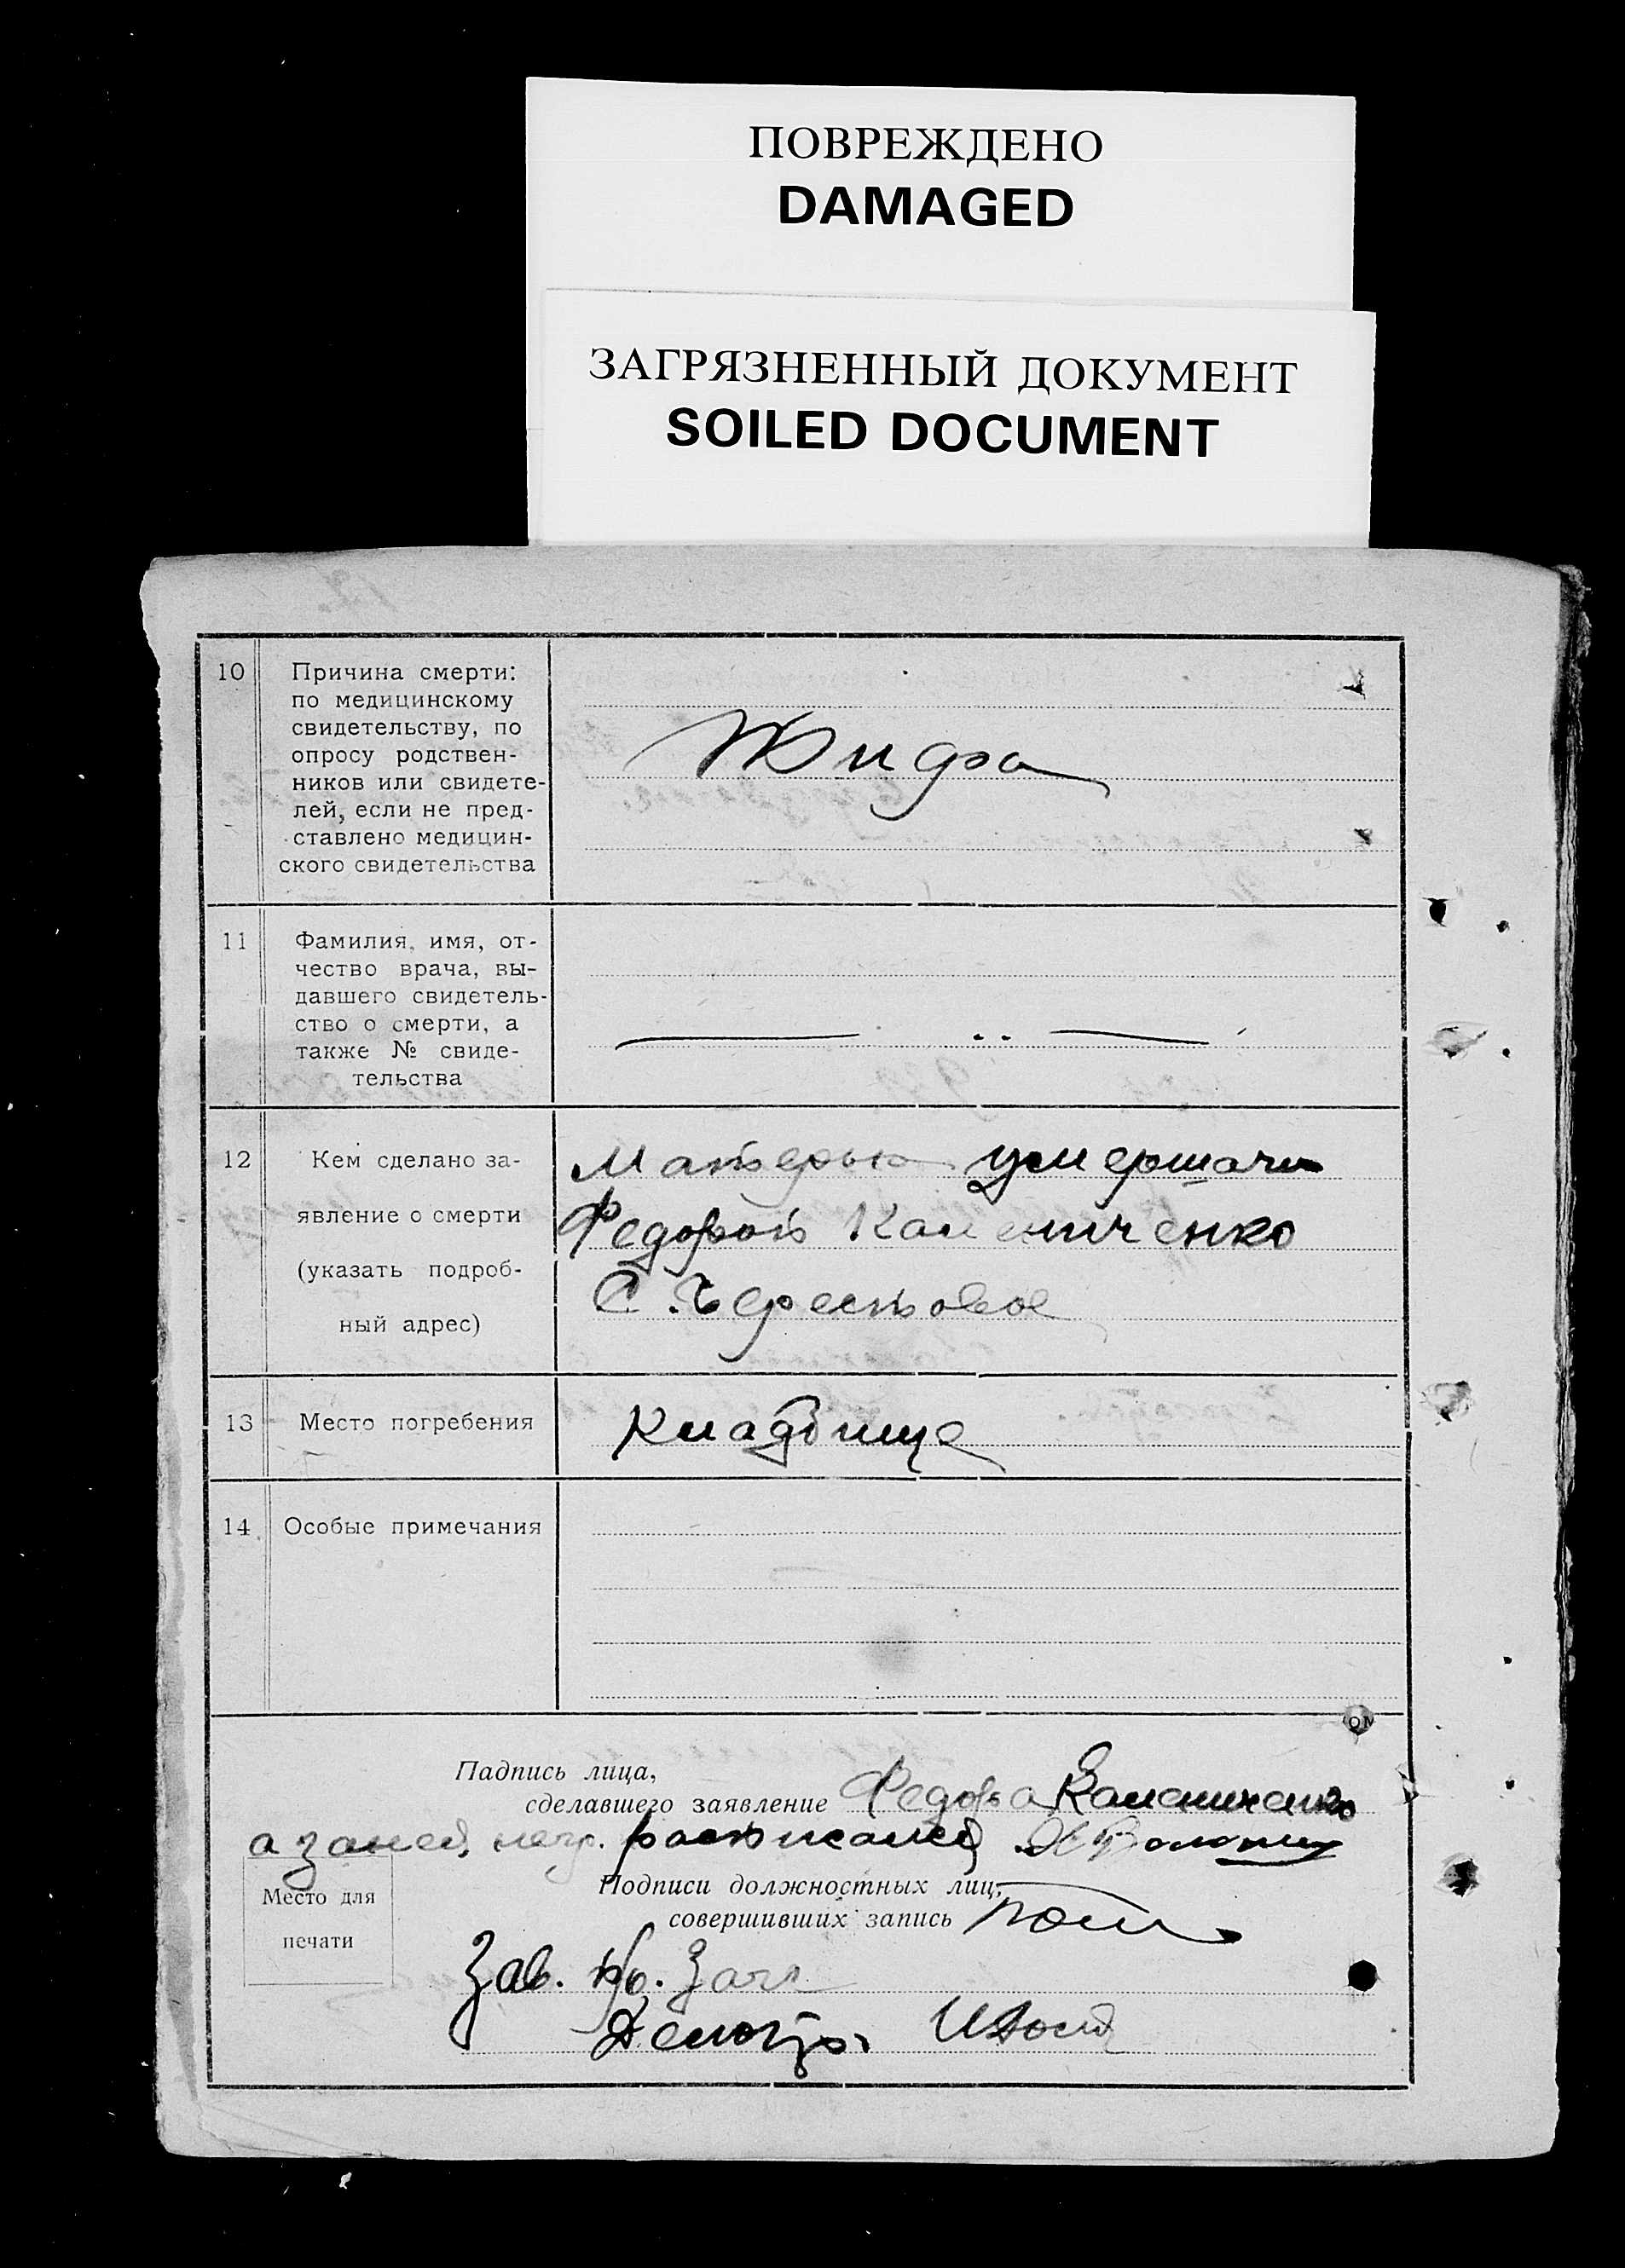 ПОВРЕЖДЕНО
DAMAGED
ЗАГРЯЗНЕННЫЙ ДОКУМЕНТ
SOILED DOCUMENT
10 Причина смерти:
по медицинскому
свидетельству, по
опросу родствен-
ников или свидете-
лей, если не пред-
ставлено медицин-
ского свидетельства
11 Фамилия, имя, от-
чество врача, вы-
давшего свидетель-
ство о смерти, а
также № свиде-
тельства
12 Кем сделано за-
явление о смерти
(указать подроб-
ный адрес)
Матерью
Федорой Калениченко
С.
13 Место погребения
Кладбище
14 Особые примечания
Падпись лица,
сделавшего заявление Федора Калениченко
а за ней негр. расписался
Место для
печати
Подписи должностных лиц,
совершивших запись
Зав. бю. Загс
Делопр.